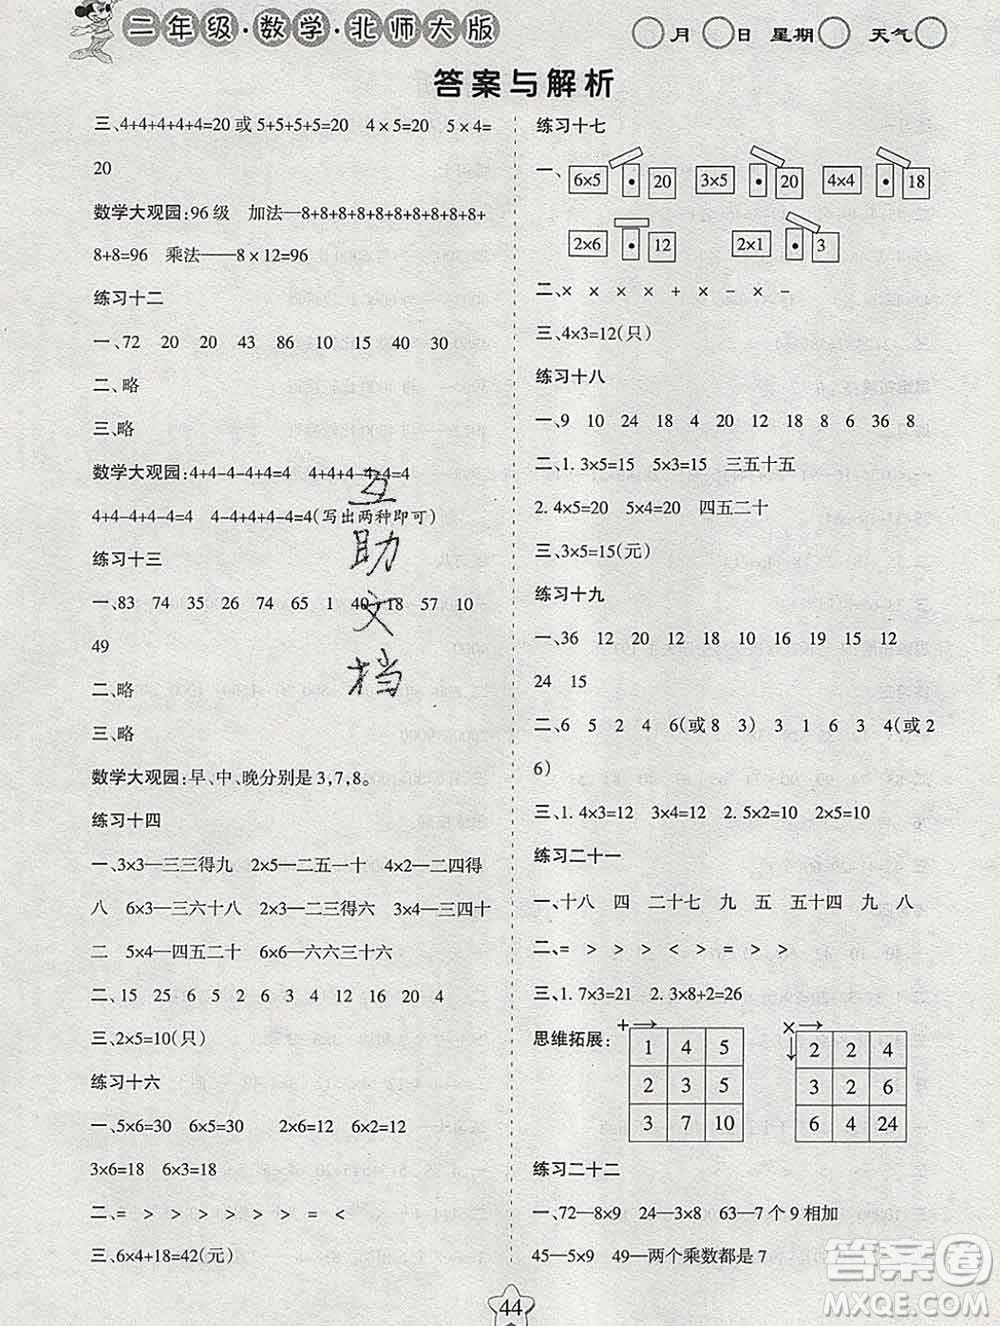 二年级·数学·北师大版
月 日 星期 天气
答案与解析
三、4+4+4+4+4=20或5+5+5+5=20 4×5=20 5×4=
20
数学大观园:96级 加法—8+8+8+8+8+8+8+8+8+8+
8+8=96 乘法——8×12=96
练习十二
一、72 20 20 43 86 10 15 40 30
二、略
三、略
数学大观园:4+4-4-4+4=4 4+4+4-4-4=4
4+4-4+4-4=4 4-4+4-4+4=4(写出两种即可)
练习十三
一、83 74 35 26 74 65 1 40 18 57 10
49
二、略
三、略
数学大观园:早、中、晚分别是3,7,8。
练习十四
一、3×3—三三得九 2×5—二五一十 4×2—二四得
八 6×3—三六十八 2×3—二三得六 3×4—三四十
二 5×4—四五二十 6×6—六六三十六
二、15 25 6 5 2 6 3 4 12 16 24 4
三、2×5=10(只)
练习十六
一、5×6=30 6×5=30 2×6=12 6×2=12
3×6=18 6×3=18
二、= > > > > > > = <
三、6×4+18=42(元)
互助文档
练习十七
一、6×5 • 20 3×5 • 20 4×4 • 18
2×6 • 12 2×1 • 3
二、× × × × + × - × -
三、4×3=12(只)
练习十八
一、9 10 24 18 4 20 12 18 8 6 36 8
二、1. 3×5=15 5×3=15 三五十五
2. 4×5=20 5×4=20 四五二十
三、3×5=15(元)
练习十九
一、36 12 20 18 10 12 19 15 12
24 15
二、6 5 2 4 6(或8 3) 3 1 6 3 4(或2
6)
三、1. 4×3=12 3×4=12 2. 5×2=10 2×5=10
练习二十一
一、十八 四 二十七 九 五 五十四 九 八
二、= > > > < > = > >
三、1. 7×3=21 2. 3×8+2=26
思维拓展:
+
1 4 5
2 3 5
3 7 10
×
2 2 4
3 2 6
6 4 24
练习二十二
一、72—8×9 24—3×8 63—7个9相加
45—5×9 49—两个乘数都是7
44
答案圈
MXQE.COM